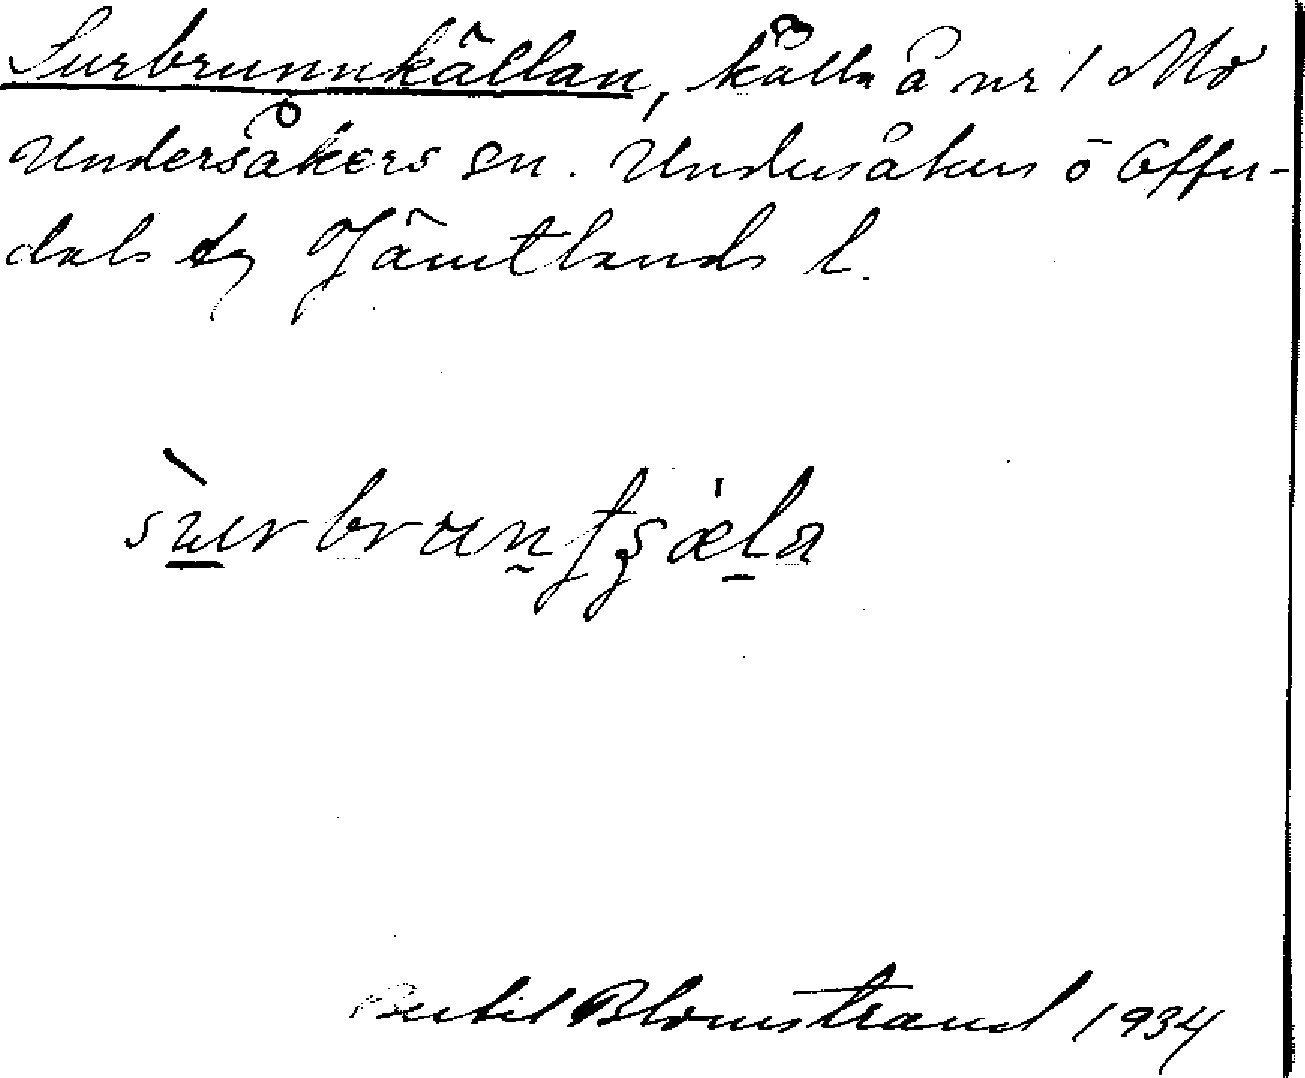 Surbrunnkällan, källa å nr 1 Mo
Undersåkers sn. Undersåkers o Offer-
dals tg Jämtlands l.
Bertil Blomstrand 1934